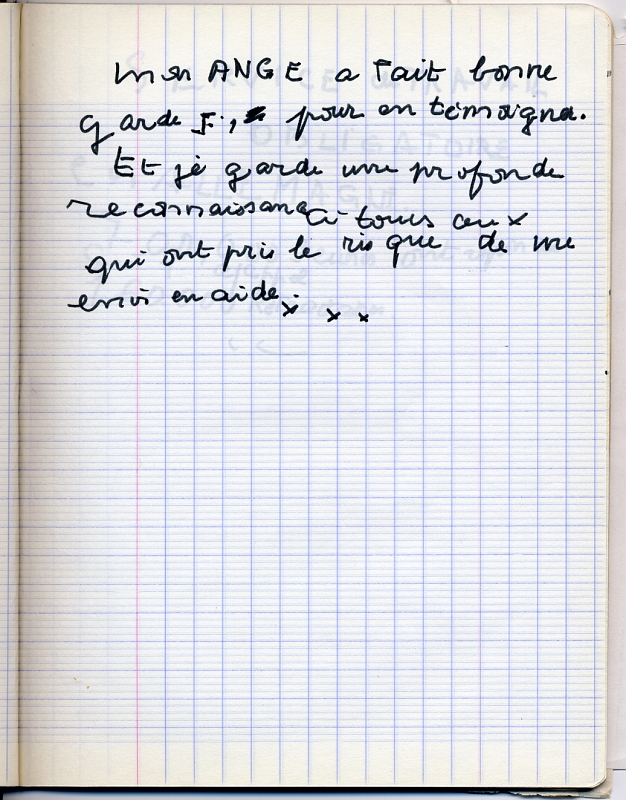 mon ANGE a fait bonne
garde F., pour en témoigner.
Et je garde une profonde
reconnaissance à tous ceux
qui ont pris le risque de me
venir en aide.
x x x